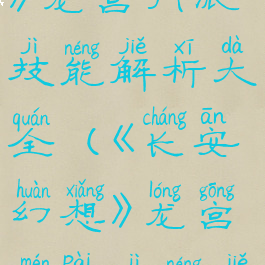 》龙宫门派
jì néng jiě xī dà
技能解析大
quán cháng ān
全（《长安
huàn xiǎng lóng gōng
幻想》龙宫
mén Pài jì néng jiě